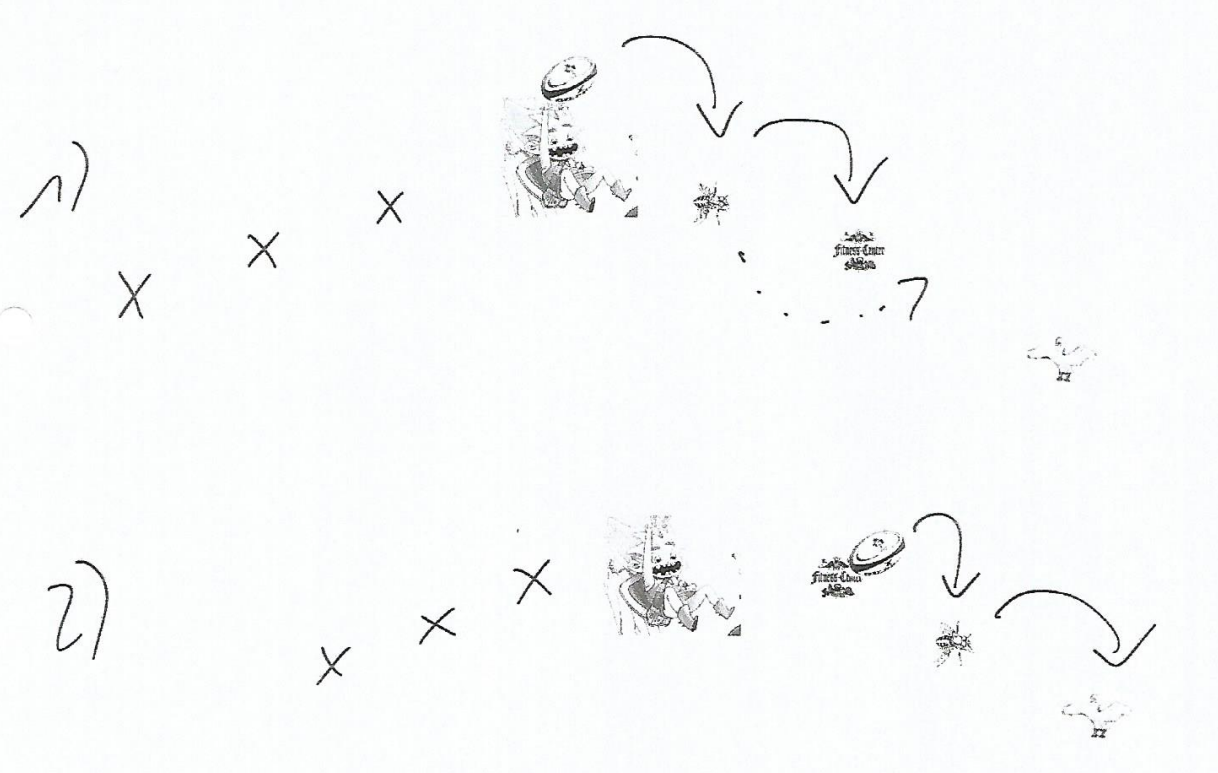 1)
X
X
X
Fitness-Center
2)
X
X
X
Fitness-Center